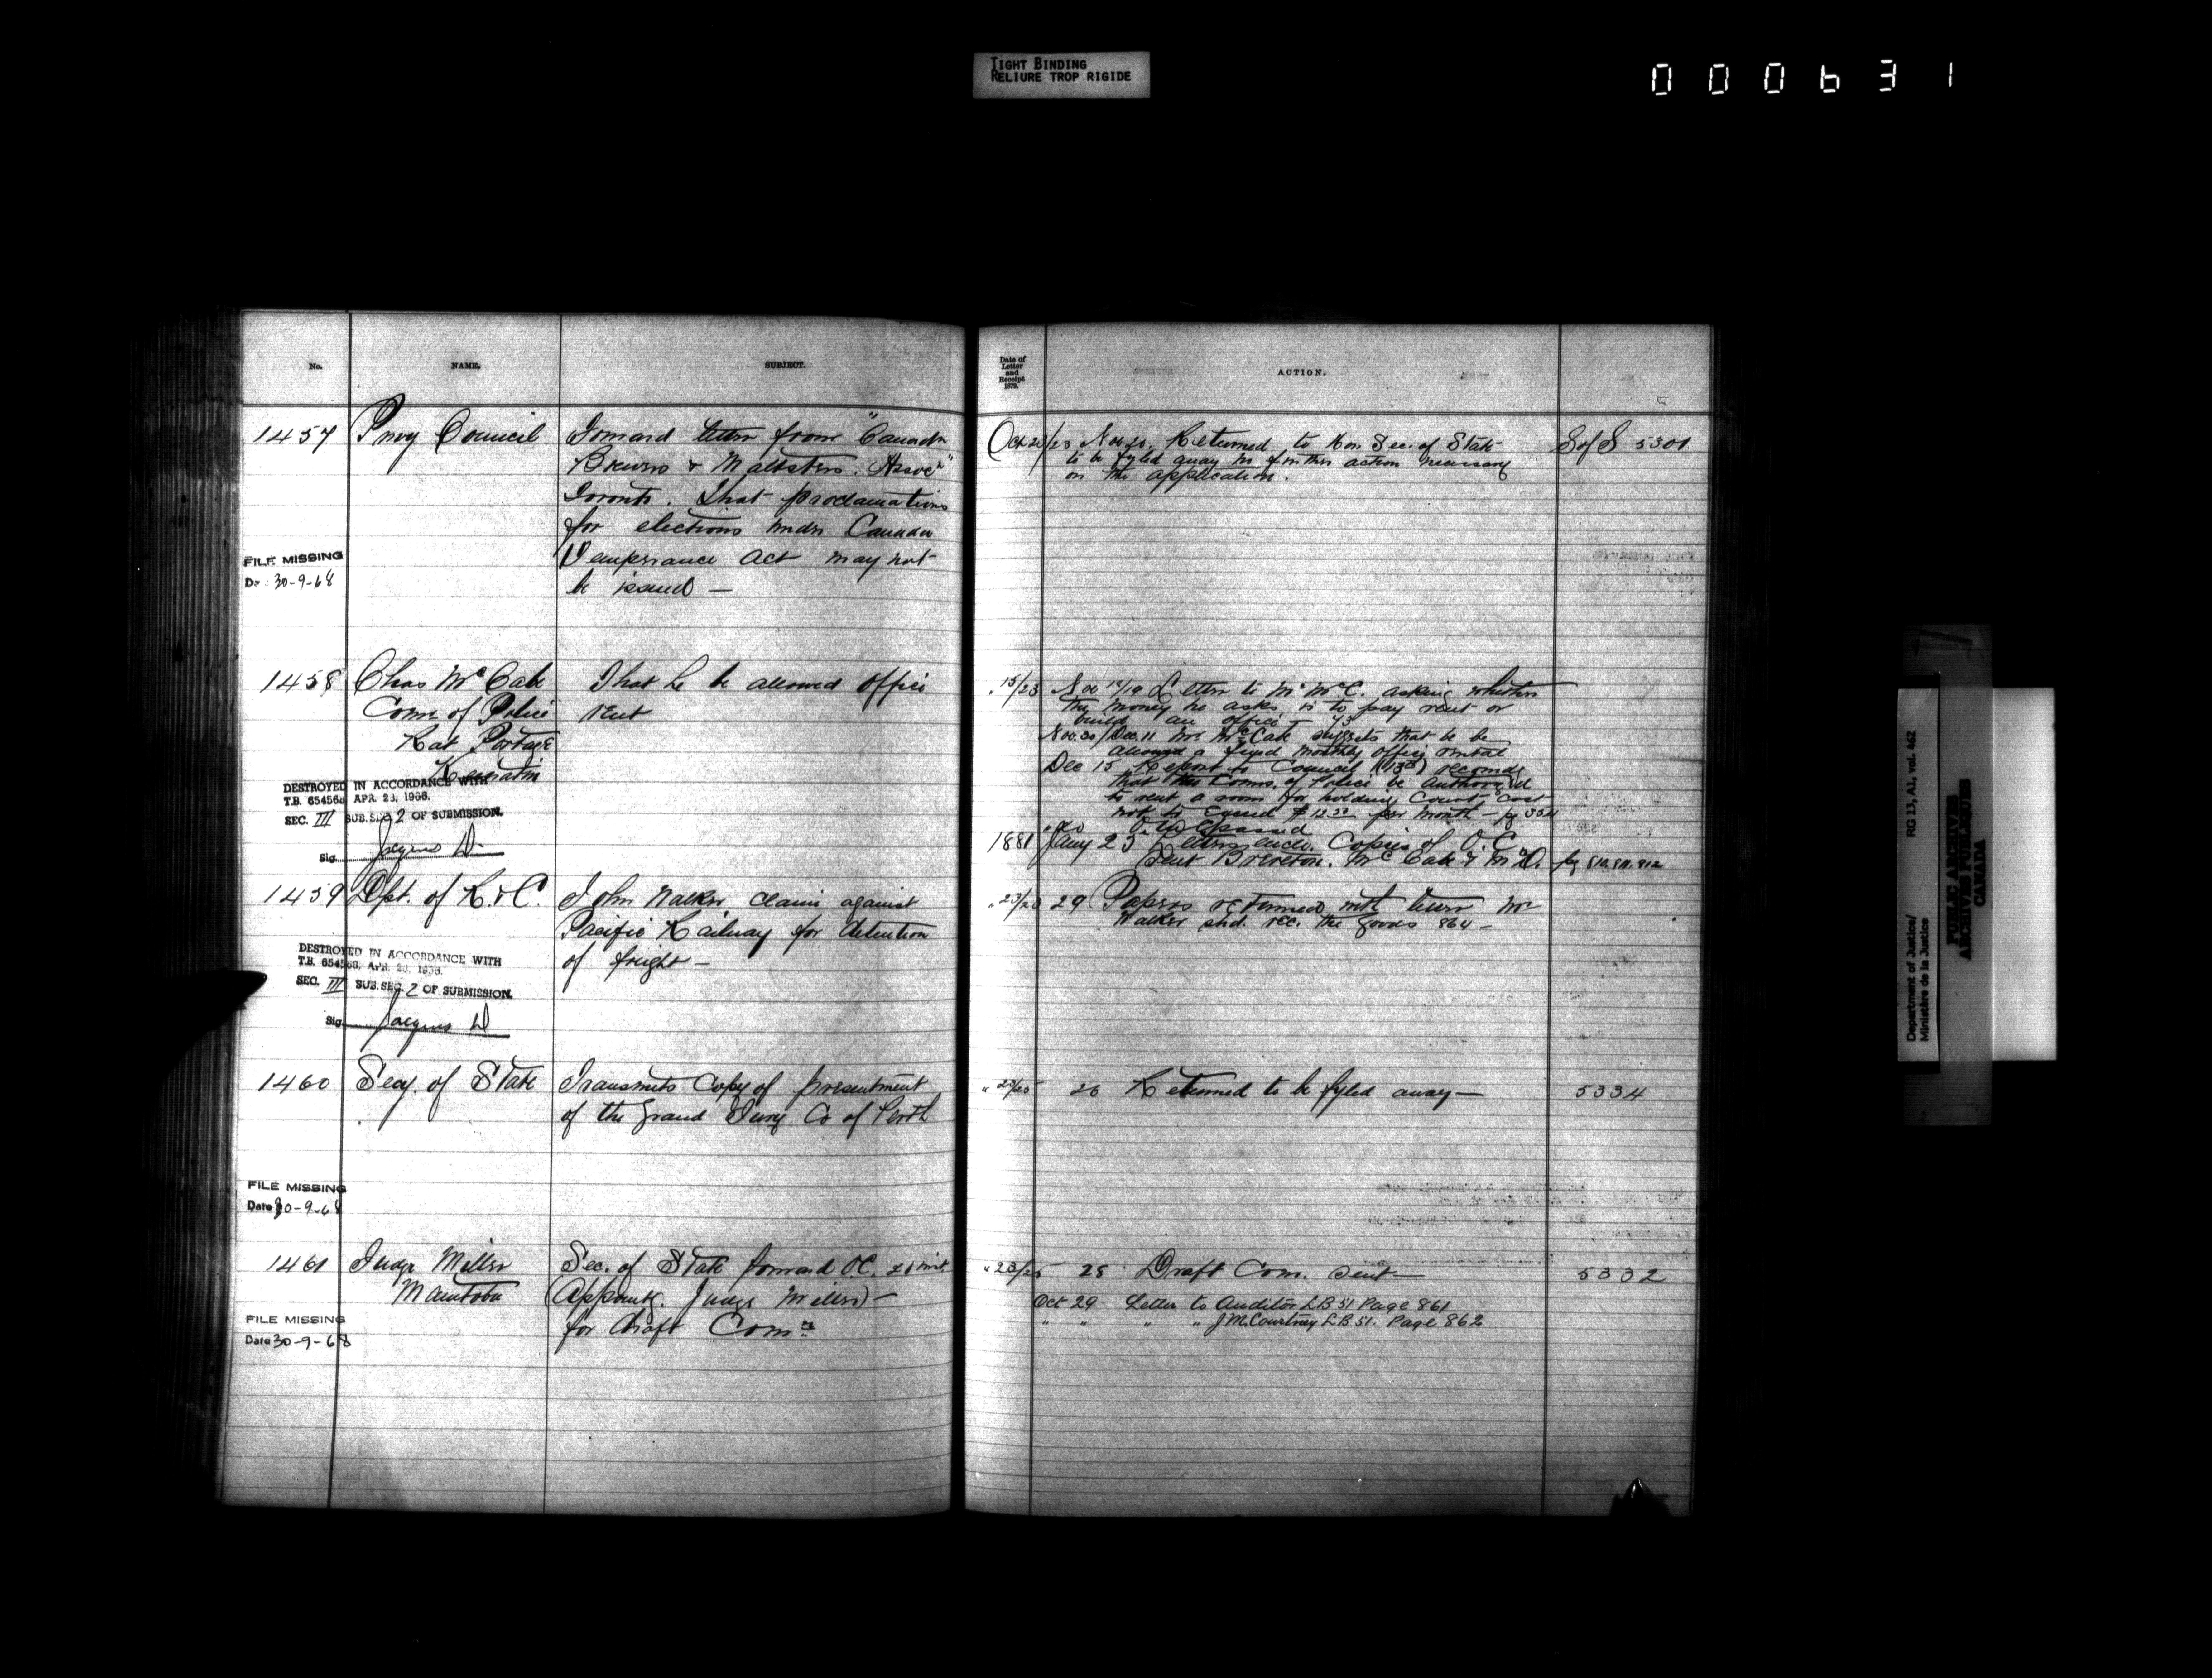 TIGHT BINDING
RELIURE TROP RIGIDE
000631
No.
NAME.
SUBJECT.
Date of
Letter
and
Receipt
1879.
ACTION.
1457 Privy Council Forward letter from "Canada
Brewers & Maltsters. Assocn"
Toronto. That proclamations
for elections under Canada
Temperance Act may not
be issued —
FILE MISSING
30-9-68
Oct 20/23 Nov 20. Returned to Hon Sec. of State
to be fyled away no further action necessary
on the application.
S of S 5301
1458 Chas McCabe That he be allowed office
Comr. of Police rent
Rat Portage
Keewatin
DESTROYED IN ACCORDANCE WITH
T.B. 654568 APR. 23, 1966.
SEC. III SUB. SEC 2 OF SUBMISSION.
Sig.
" 15/23 Nov Letter to Mr McC. asking whether
the money he asks is to pay rent or
build an office
Nov. 30/Dec. 11 Mr McCabe suggests that he be
allowed a fixed monthly office rental
Dec 15 Report to Council (13th) recomdg
that the Comrs. of Police be authorized
to rent a room for holding Court cost
not to Exceed $12.50 per month — pg 334
O.C. passed
1881 Jany 23 Letters encl. Copies of O.C.
Sent Brereton. McCabe & McD. pg 810, 811, 812
1459 Dpt. of R. & C. John Walker claim against
Pacific Railway for detention
of freight —
DESTROYED IN ACCORDANCE WITH
T.B. 654568, APR. 23, 1966.
SEC. III SUB. SEC. 2 OF SUBMISSION.
Sig.
" 23/23 29 Papers returned with
Walker shd. rec. the goods 864 —
1460 Secy. of State Transmits Copy of presentment
of the Grand Jury Co of Perth
FILE MISSING
Date 30-9-68
" 23/25 26 Returned to be fyled away — 5334
1461 Judge Miller Sec. of State forward O.C. 21 inst
Manitoba (Appointg. Judge Miller) —
for draft Comn
FILE MISSING
Date 30-9-68
" 23/25 28 Draft Com. sent — 5332
Oct 29 Letter to Auditor LB 51 Page 861
" " " " J M. Courtney LB 51. Page 862
Department of Justice/
Ministère de la Justice
RG 13, A1, vol. 462
PUBLIC ARCHIVES
ARCHIVES PUBLIQUES
CANADA